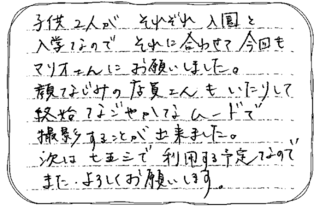 子供2人が それぞれ 入園と
入学なので それに合わせて 今回も
マリオさんに お願いしました。
顔なじみの店員さんも いたりして
終始 なごやかな ムードで
撮影することが 出来ました。
次は 七五三で 利用する予定なので
また よろしくお願いします。